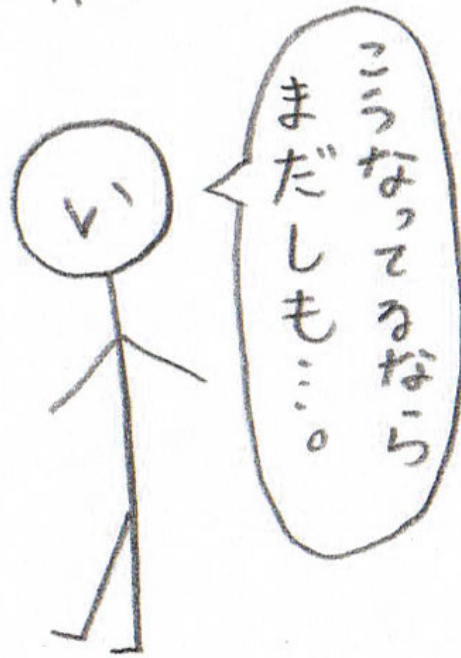 こうなってるなら
まだしも…。
い